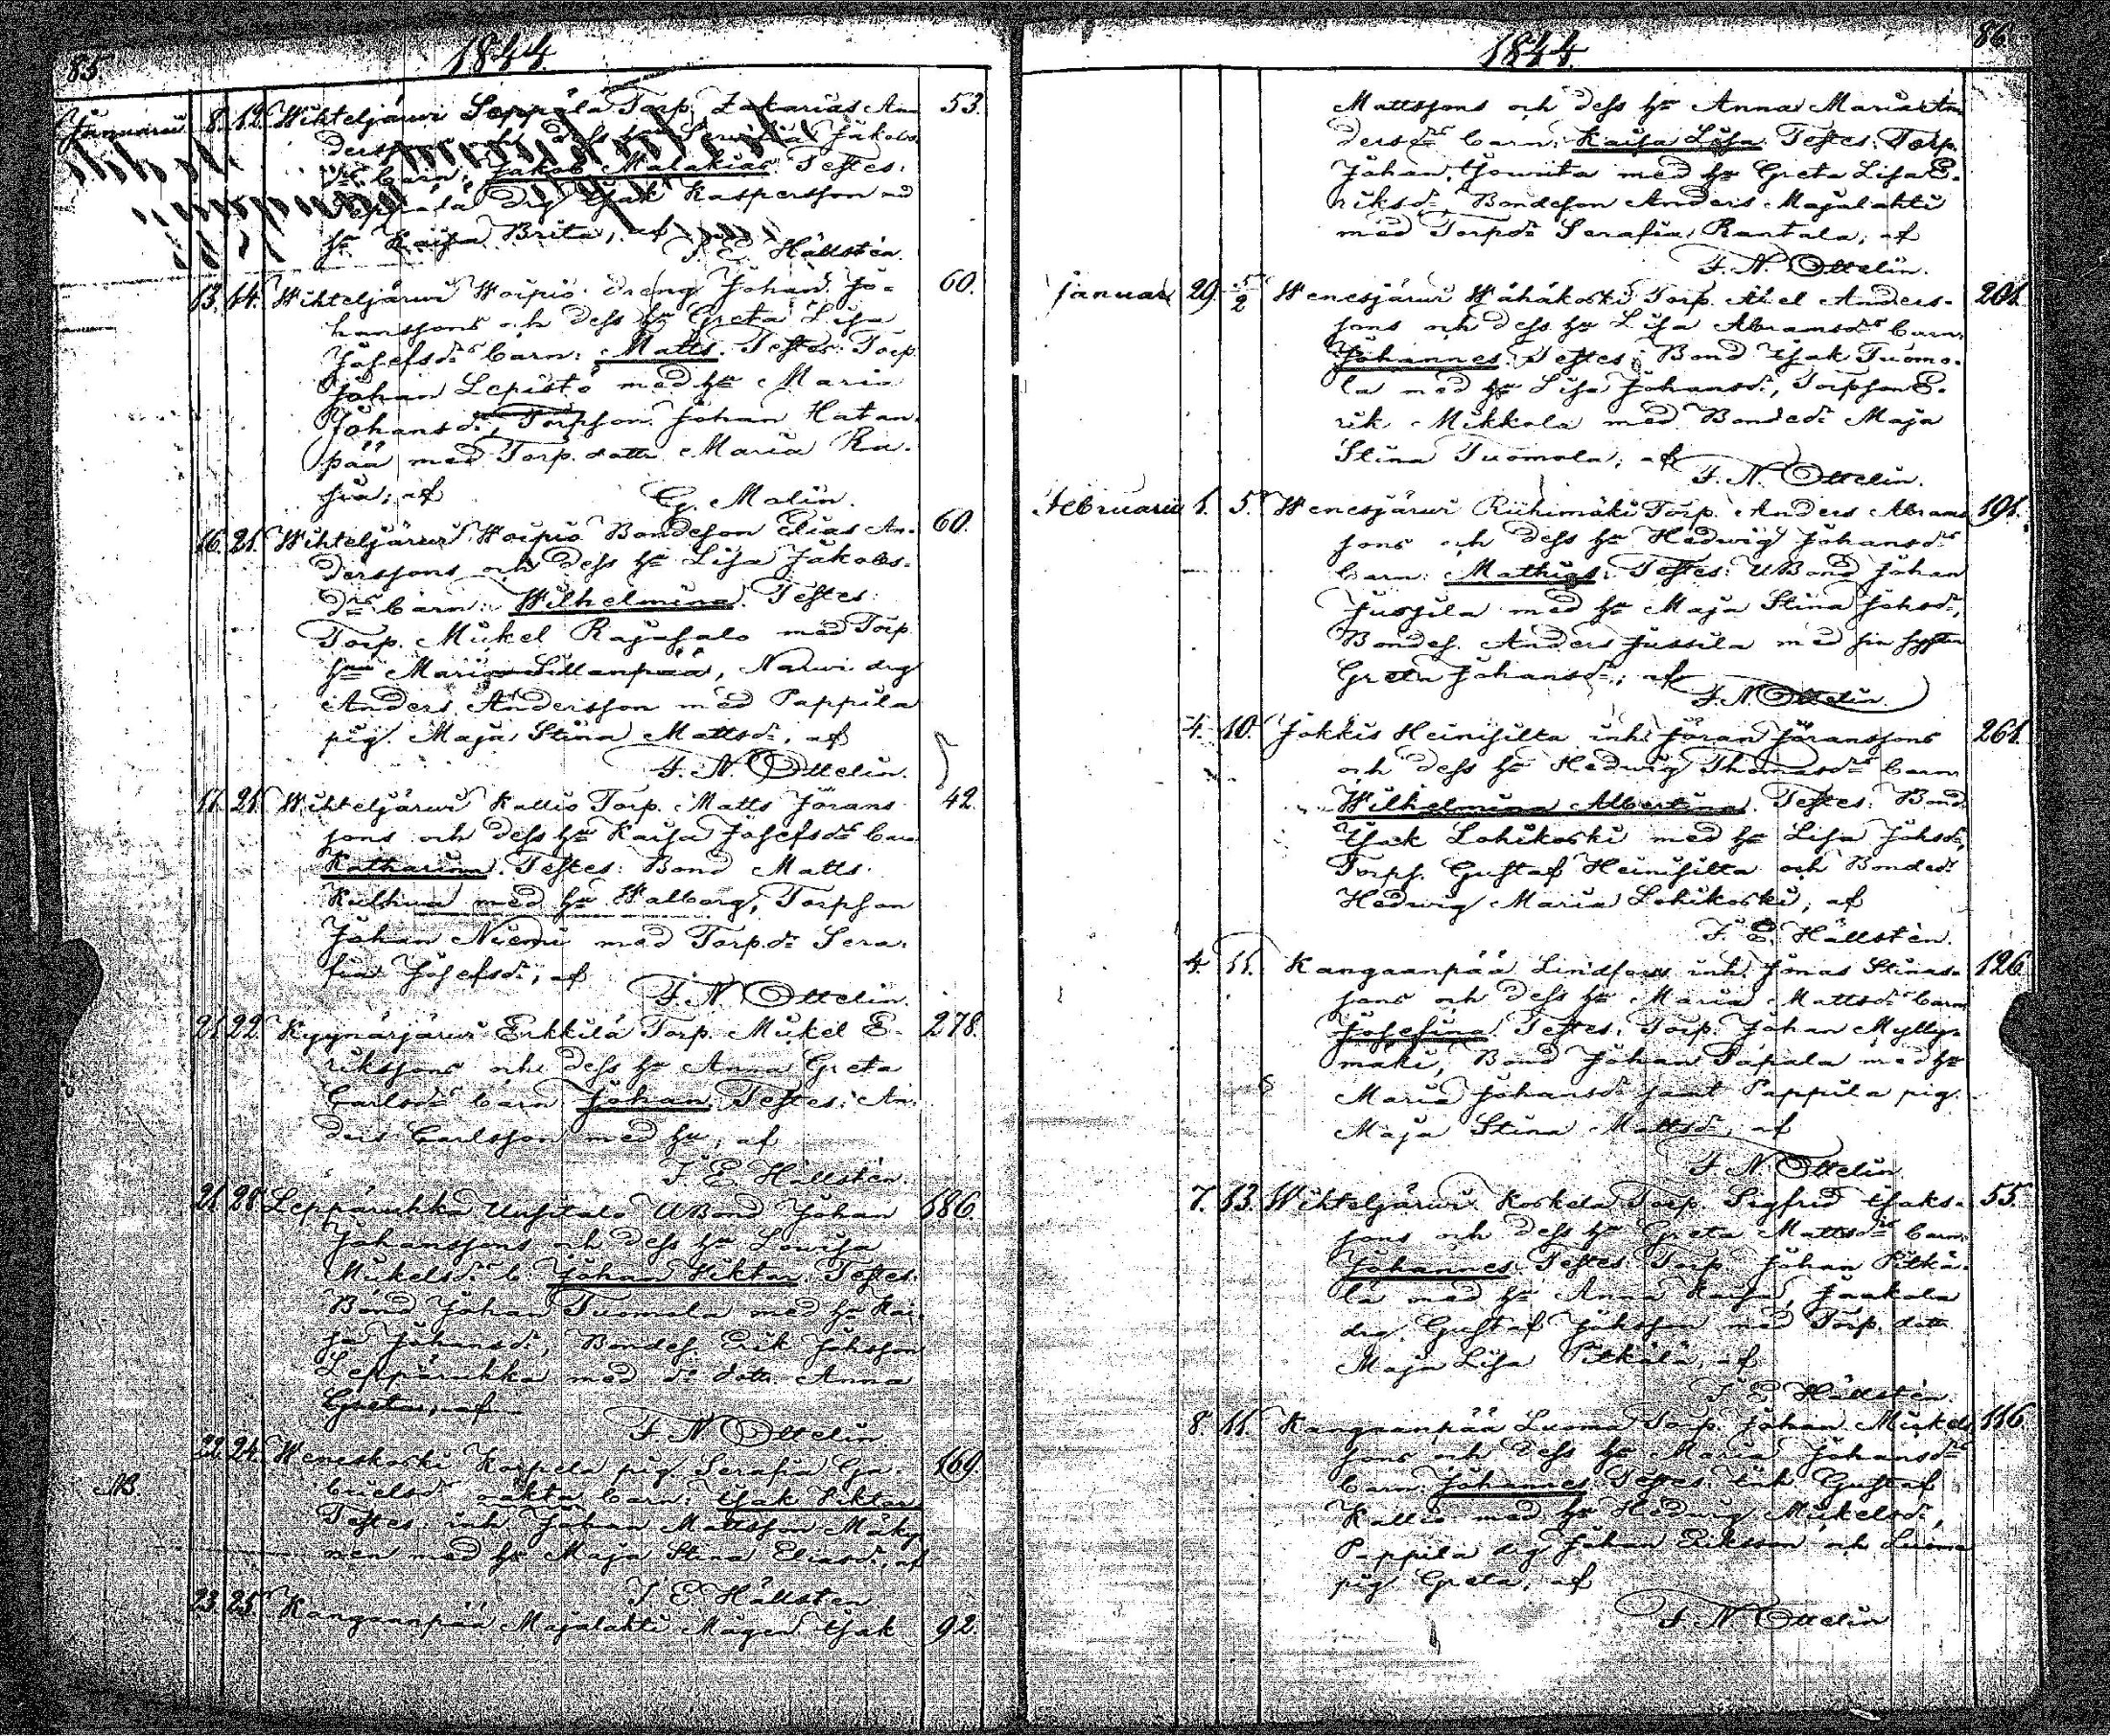 85.
1844
Januarii 8. 12. Wihteljärwi Seppälä Torp. Zakarias An- 53.
Jakobs
dr. barn: Jakob Malakias. Testes:
drg Isak Kaspersson med
hu Kaisa Brita; af
F. E. Hällstén.
13. 14. Wihteljärwi Woipio dräng Johan Jo- 60.
hanssons och dess hu Greta Lisa
Josefsdrs barn: Matts. Testes: Torp.
Johan Lepistö med hu Maria
Johansdr, Torpson Johan Hatan-
pää med Torp. dottr Maria Ra-
; af G. Malin.
16. 21. Wihteljärwi Woipio Bondeson Elias An- 60.
derssons och dess hu Lisa Jakobs-
drs barn: Wilhelmina. Testes:
Torp. Mikel Rajasalo med Torp.
hu Maria Sillanpää, Narwi drg
Anders Andersson med Pappila
pig. Maja Stina Mattsdr, af
F. N. Ottelin.
17. 21. Wihteljärwi Kallio Torp. Matts Jörans- 42.
sons och dess hu Kaisa Josefsdrs barn
Katharina. Testes: Bond Matts
Kulhua med hu Walborg, Torpson
Johan Niemi med Torp.dr Sera-
fia Josefsdr; af
F. N. Ottelin.
21. 22. Kyynärjärwi Erkkilä Torp. Mikel E- 278.
rikssons och dess hu Anna Greta
Carlsdrs barn Johan. Testes: An-
ders Carlsson med hu; af
F. E. Hällstén.
21. 28. Leppäruhka Uusitalo UBond Johan 186.
Johanssons och dess hu Lowisa
Mikelsdrs b. Johan Wiktor. Testes:
Bond Johan Tuomola med hu Kai-
sa Johansdr, Bondes. Erik Johsson
Leppäruhka med dr dottr Anna
Greta, af
F. N. Ottelin
NB. 22. 24. Weneskoski Korpela pig. Serafia Ga- 169.
brielsdrs oäkta barn: Isak Wiktor
Testes: inh. Johan Mattsson Mäky-
nen med hu Maja Stina Eliasdr, af
F. E. Hällstén
23. 25. Kangaanpää Majalahti Mågen Isak 92.
86.
1844.
Mattssons och dess hu Anna Maria An-
dersdrs barn: Kaisa Lisa. Testes: Torp.
Johan med hu Greta Lisa E-
riksdr, Bondeson Anders Majalahti
med Torpdr Serafia Rantala; af
F. N. Ottelin.
Januarii 29. 5/2 Wenesjärwi Wähäkoski Torp. Anders- 201.
sons och dess hu Lisa Abramsdrs barn:
Johannes. Testes: Bond Isak Tuomo-
la med hu Lisa Johansdr, Torpson E-
rik Mikkola med Bondedr Maja
Stina Tuomola; af
F. N. Ottelin.
Februarii 1. 5. Wenesjärwi Riihimäki Torp. Anders Abrams 191.
sons och dess hu Hedwig Johansdrs
barn: Mathias. Testes: UBond Johan
Jussila med hu Maja Stina Johsdr,
Bondes. Anders Jussila med sin syster
Greta Johansdr; af
F. N. Ottelin.
4. 10. Jokkis Heinisilta inh. Jöran Jöranssons 261.
och dess hu Hedwig Thomasdrs barn
Wilhelmina Albertina. Testes: Bond
Isak Lohikoski med hu Lisa Johsdr,
Torps. Gustaf Heinisilta och Bondedr
Hedwig Maria Lohikoski; af
F. E. Hällstén.
4. 11. Kangaanpää Lindfors inh. Jonas Stinas- 126.
sons och dess hu Maria Mattsdrs barn
Josefina. Testes: Torp. Johan Mylly-
mäki, Bond Johan Papala med hu
Maria Johansdr samt Pappila pig.
Maja Stina Mattsdr, af
F. N. Ottelin
7. 13. Wihteljärwi Koskela Torp. Sigfrid Isaks- 55.
sons och dess hu Greta Mattsdrs barn:
Johannes. Testes Torp Johan Pitkä-
lä med hu Anna Kaisa, Jaakola
drg. Gustaf Johsson med Torp. dottr
Maja Lisa Pitkälä, af
F. E. Hällstén
8. 11. Kangaanpää Luoma Torp. Johan Mikels 116.
sons och dess hu Maria Johansdrs
barn: Johannes. Testes: inh Gustaf
Kallio med hu Hedwig Mikelsdr,
Pappila drg Johan Eriksson och Luoma
pig Greta; af
F. N. Ottelin